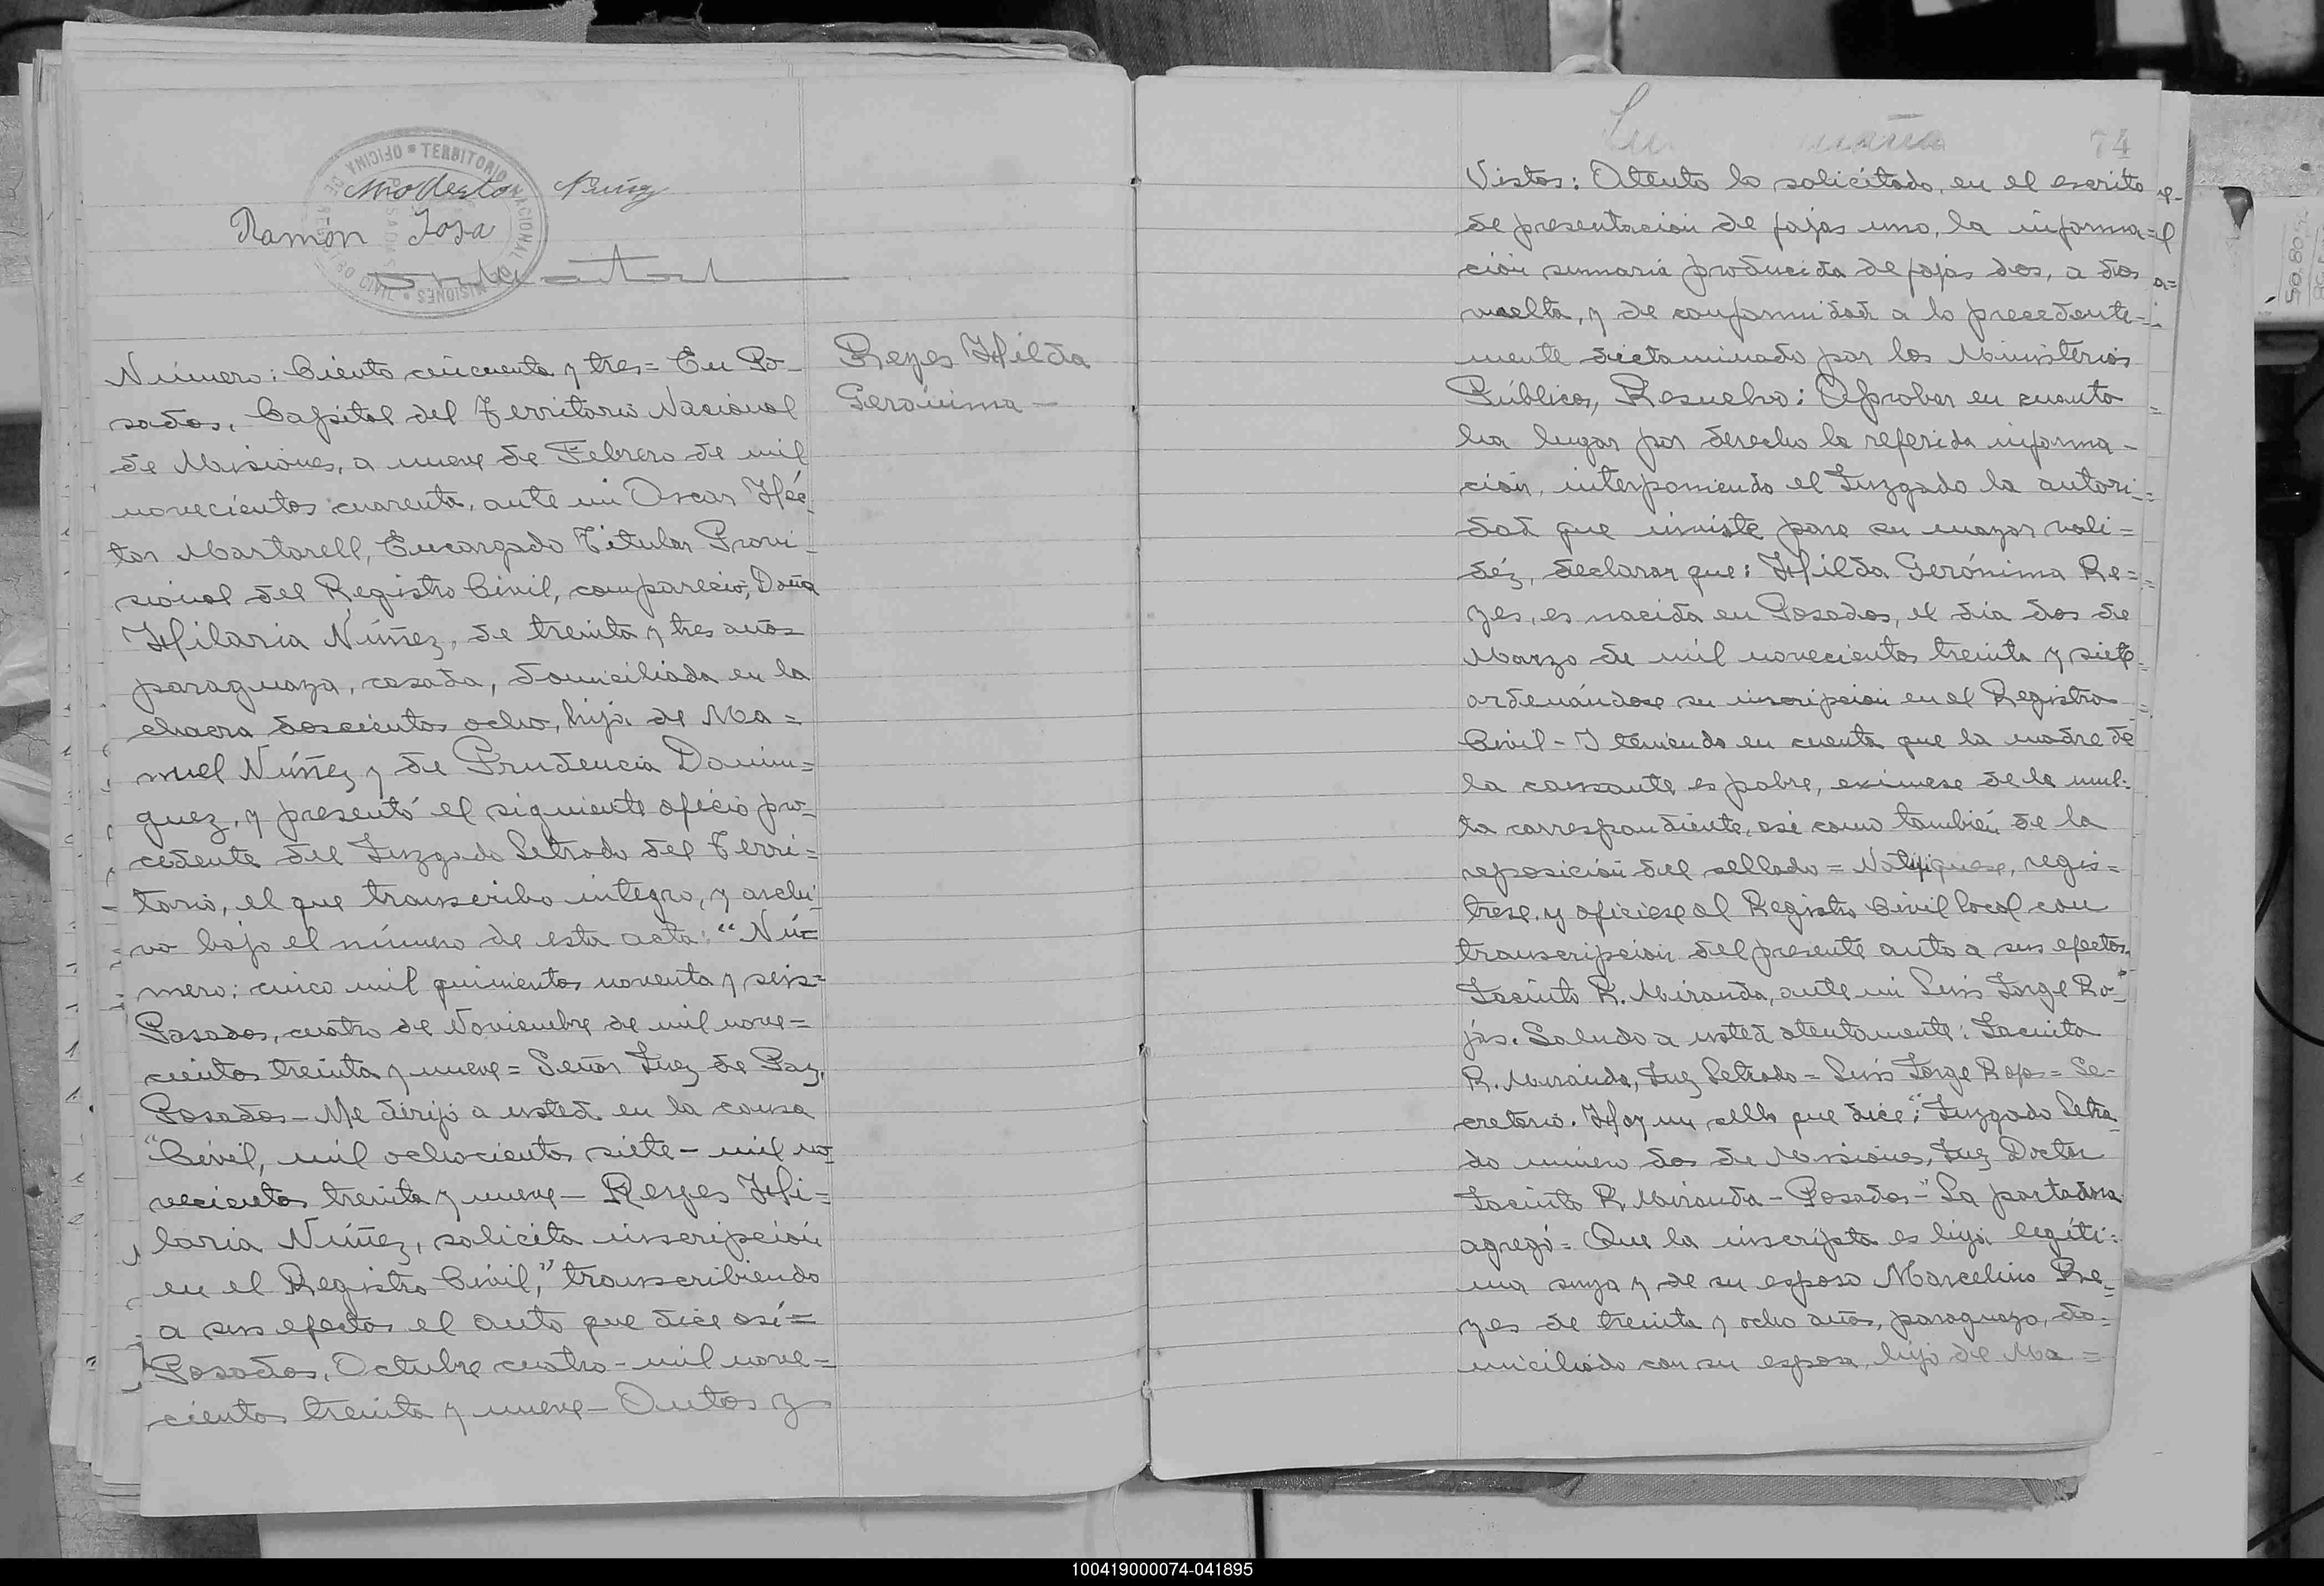 OFICINA DE REGISTRO CIVIL • TERRITORIO NACIONAL DE MISIONES •
POSADAS
Modesto Nuñez
Ramón Sosa
Número: Ciento cincuenta y tres= En Po-
sadas, Capital del Territorio Nacional
de Misiones, a nueve de Febrero de mil
novecientos cuarenta, ante mi Oscar Héc-
tor Martorell, Encargado Titular Provi-
sional del Registro Civil, compareció, Doña
Hilaria Núñez, de treinta y tres años
paraguaya, casada, domiciliada en la
chacra doscientos ocho, hija de Ma=
nuel Núñez y de Prudencia Domin=
guez, y presentó el siguiente oficio pro-
cedente del Juzgado Letrado del Terri=
torio, el que transcribo integro, y archi-
vo bajo el número de esta acta: "Nú=
mero: cinco mil quinientos noventa y seis=
Posadas, cuatro de Noviembre de mil nove=
cientos treinta y nueve= Señor Juez de Paz,
Posadas- Me dirijo a usted en la causa
"Civil, mil ochocientos siete- mil no-
vecientos treinta y nueve- Reyes Hi=
laria Núñez, solicita inscripción
en el Registro Civil," transcribiendo
a sus efectos el auto que dice así=
Posadas, Octubre cuatro- mil nove=
cientos treinta y nueve- Autos y
Reyes Hilda
Gerónima-
74
Vistos: Atento lo solicitado, en el escrito
de presentación de fojas uno, la informa=
ción sumaria producida de fojas dos, a dos
vuelta, y de conformidad a lo precedente-
mente dictaminado por los Ministerios
Públicos, Resuelvo: Aprobar en cuanto
ha lugar por derecho la referida informa-
ción, interponiendo el Juzgado la autori-
dad que inviste para su mayor vali=
déz, declarar que: Hilda Gerónima Re=
yes, es nacida en Posadas, el día dos de
Marzo de mil novecientos treinta y siete
ordenándose su inscripción en el Registro
Civil- I teniendo en cuenta que la madre de
la causante es pobre, exímese de la mul-
ta correspondiente, así como también de la
reposición del sellado= Notifíquese, regis=
trese, y oficiese al Registro Civil local con
transcripción del presente auto a sus efectos.
Jacinto R. Miranda, ante mi Luis Jorge Ro-"
jas. Saludo a usted atentamente: Jacinto
R. Miranda, Juez Letrado= Luis Jorge Rojas= Se-
cretario. Hay un sello que dice: "Juzgado Letra-
do número dos de Misiones, Juez Doctor
Jacinto R. Miranda- Posadas-" La portadora
agregó= Que la inscripta es hija legíti=
ma suya y de su esposo Marcelino Re-
yes de treinta y ocho años, paraguayo, do=
miciliado con su esposa, hijo de Ma=
100419000074-041895